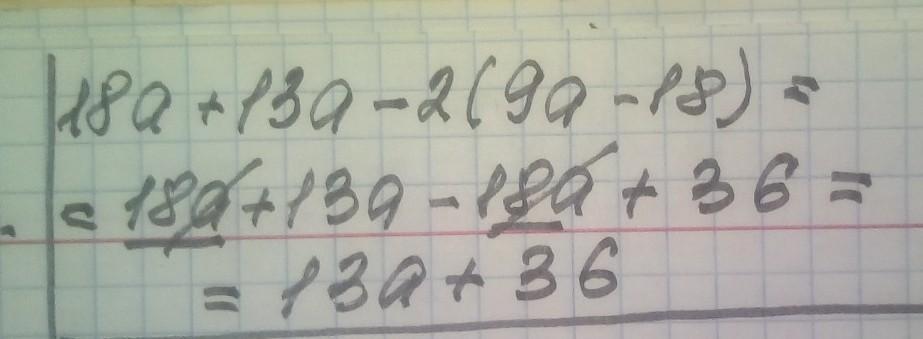 18a + 13a - 2(9a - 18) =
= 18a + 13a - 18a + 36 =
= 13a + 36